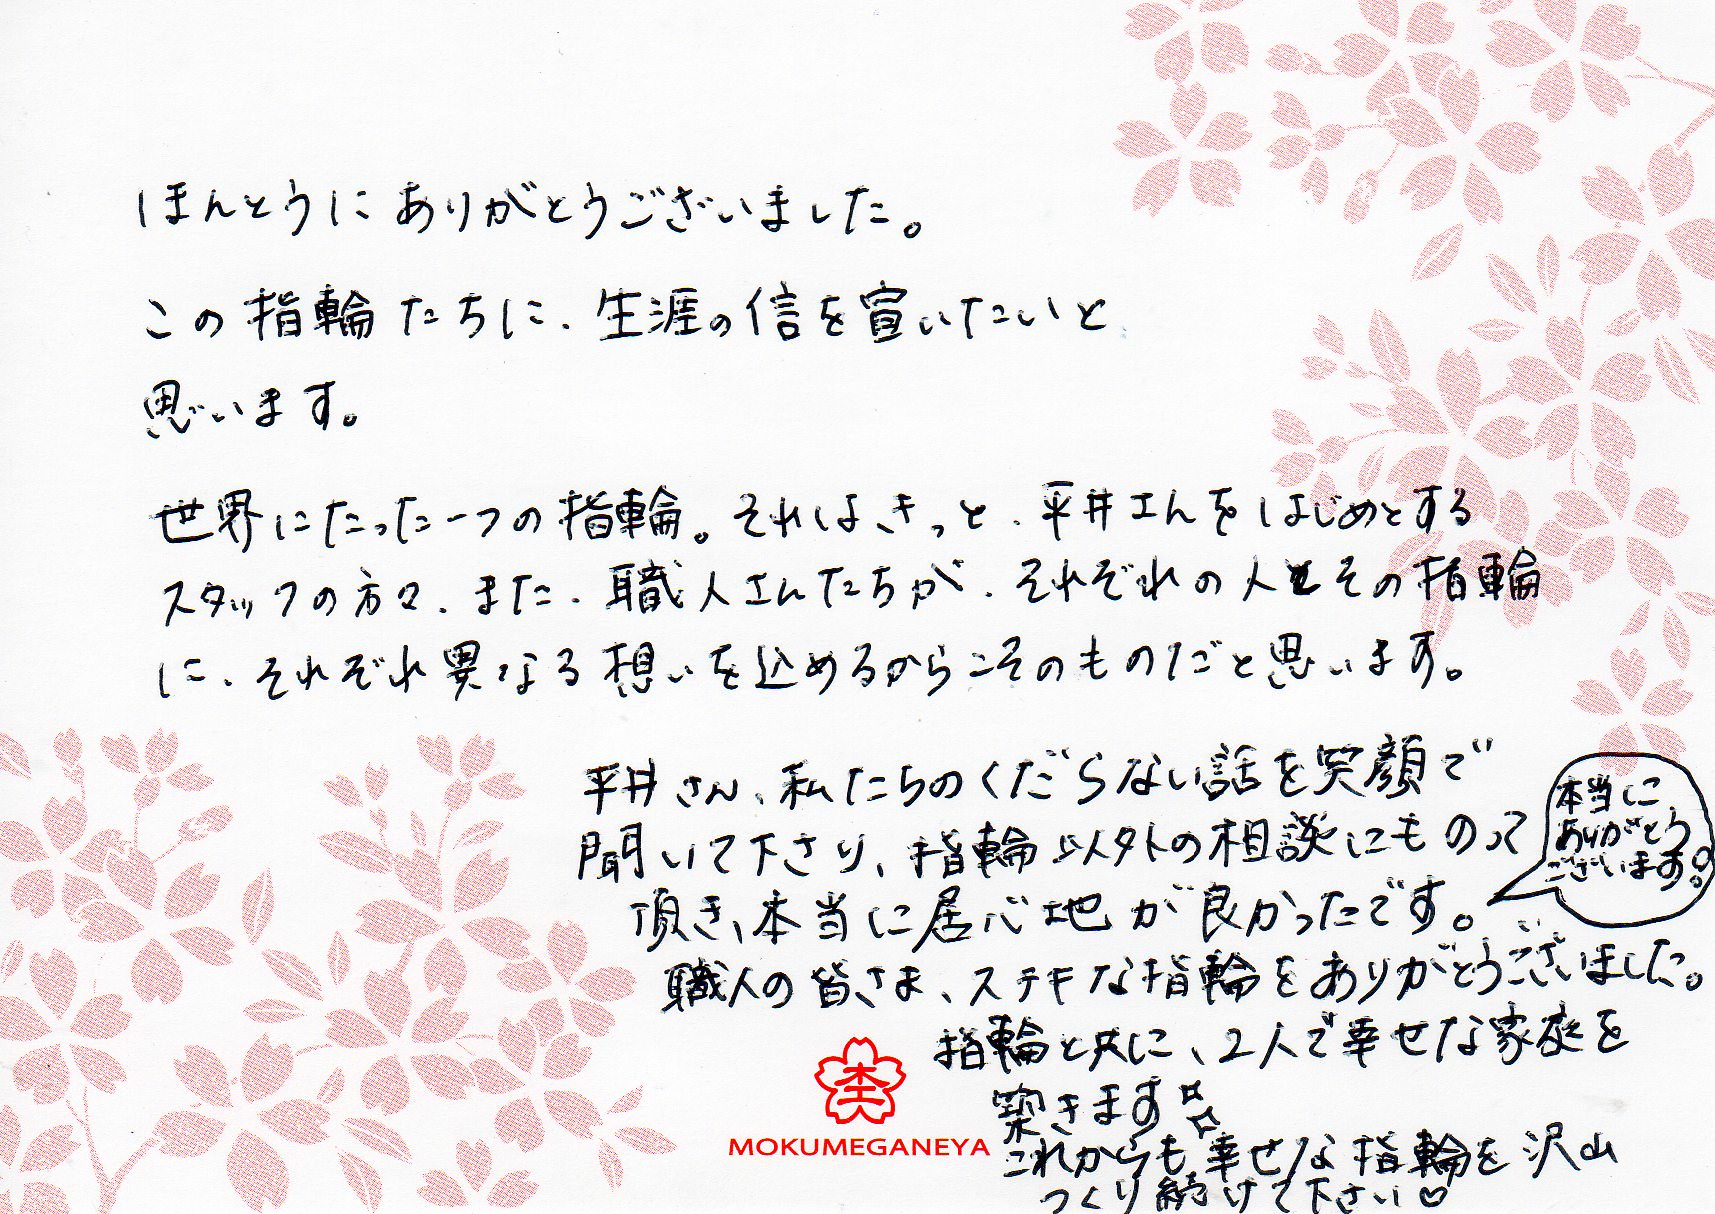 ほんとうにありがとうございました。
この指輪たちに、生涯の信を宣いたいと
思います。
世界にたった一つの指輪。それはきっと、平井さんをはじめとする
スタッフの方々、また、職人さんたちが、それぞれの人とその指輪
に、それぞれ異なる想いを込めるからこそのものだと思います。
平井さん、私たちのくだらない話を笑顔で
聞いて下さり、指輪以外の相談にものって
頂き、本当に居心地が良かったです。
本当に
ありがとう
ございます!
職人の皆さま、ステキな指輪をありがとうございました。
指輪と共に、2人で幸せな家庭を
築きます
これからも幸せな指輪を沢山
つくり続けて下さい♡
杢
MOKUMEGANEYA